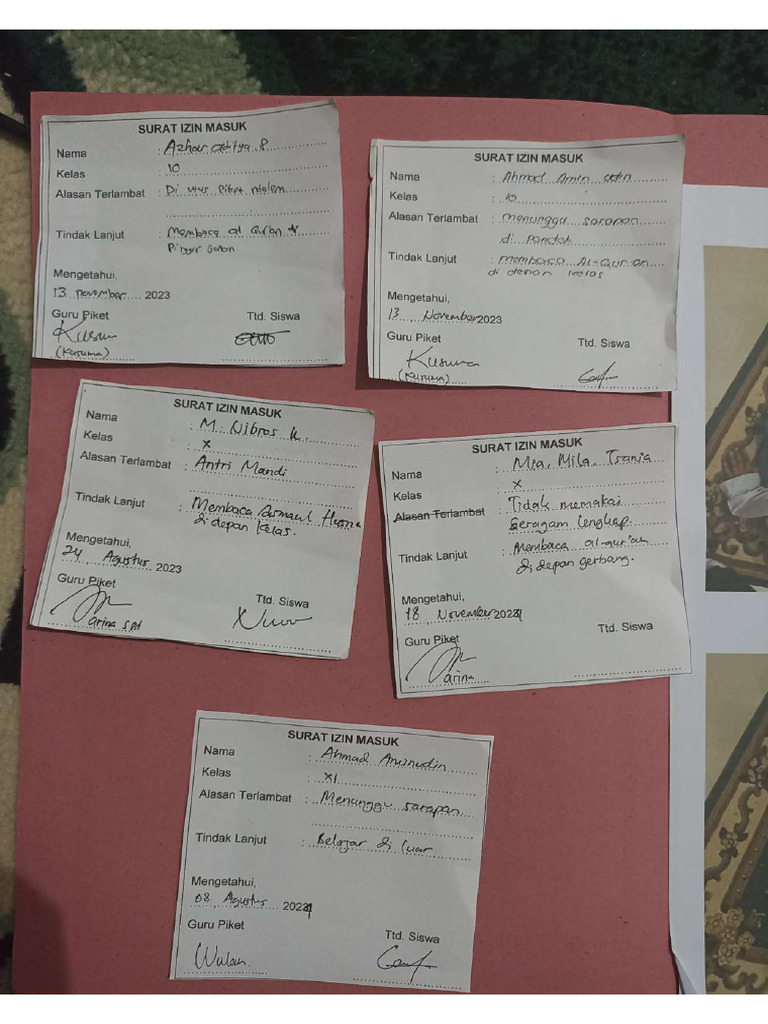 SURAT IZIN MASUK
Nama : Azhar aditya P
Kelas : 10
Alasan Terlambat : Di urus Piket malem
Tindak Lanjut : Membaca al Quran di
Mengetahui,
13 november 2023
Guru Piket Ttd. Siswa
(Kusuma)
SURAT IZIN MASUK
Nama : Ahmad Amin udin
Kelas : 10
Alasan Terlambat : menunggu sarapan
di Pondok
Tindak Lanjut : membaca Al-Qur'an
di depan kelas
Mengetahui,
13 November 2023
Guru Piket Ttd. Siswa
Kusuma
(Kusuma)
SURAT IZIN MASUK
Nama : M. Nibros K
Kelas : X
Alasan Terlambat : Antri Mandi
Tindak Lanjut : Membaca Asmaul Husna
di depan kelas.
Mengetahui,
24 Agustus 2023
Guru Piket Ttd. Siswa
arina S.Pd
SURAT IZIN MASUK
Nama : Mia, Mila, Tsania
Kelas : X
Alasan Terlambat : Tidak memakai
Seragam lengkap.
Tindak Lanjut : Membaca al-qur'an
di depan gerbang.
Mengetahui,
18 November 2024
Guru Piket Ttd. Siswa
arina
SURAT IZIN MASUK
Nama : Ahmad Aminudin
Kelas : XI
Alasan Terlambat : Menunggu sarapan
Tindak Lanjut : Belajar di luar
Mengetahui,
08 Agustus 2024
Guru Piket Ttd. Siswa
Wulan